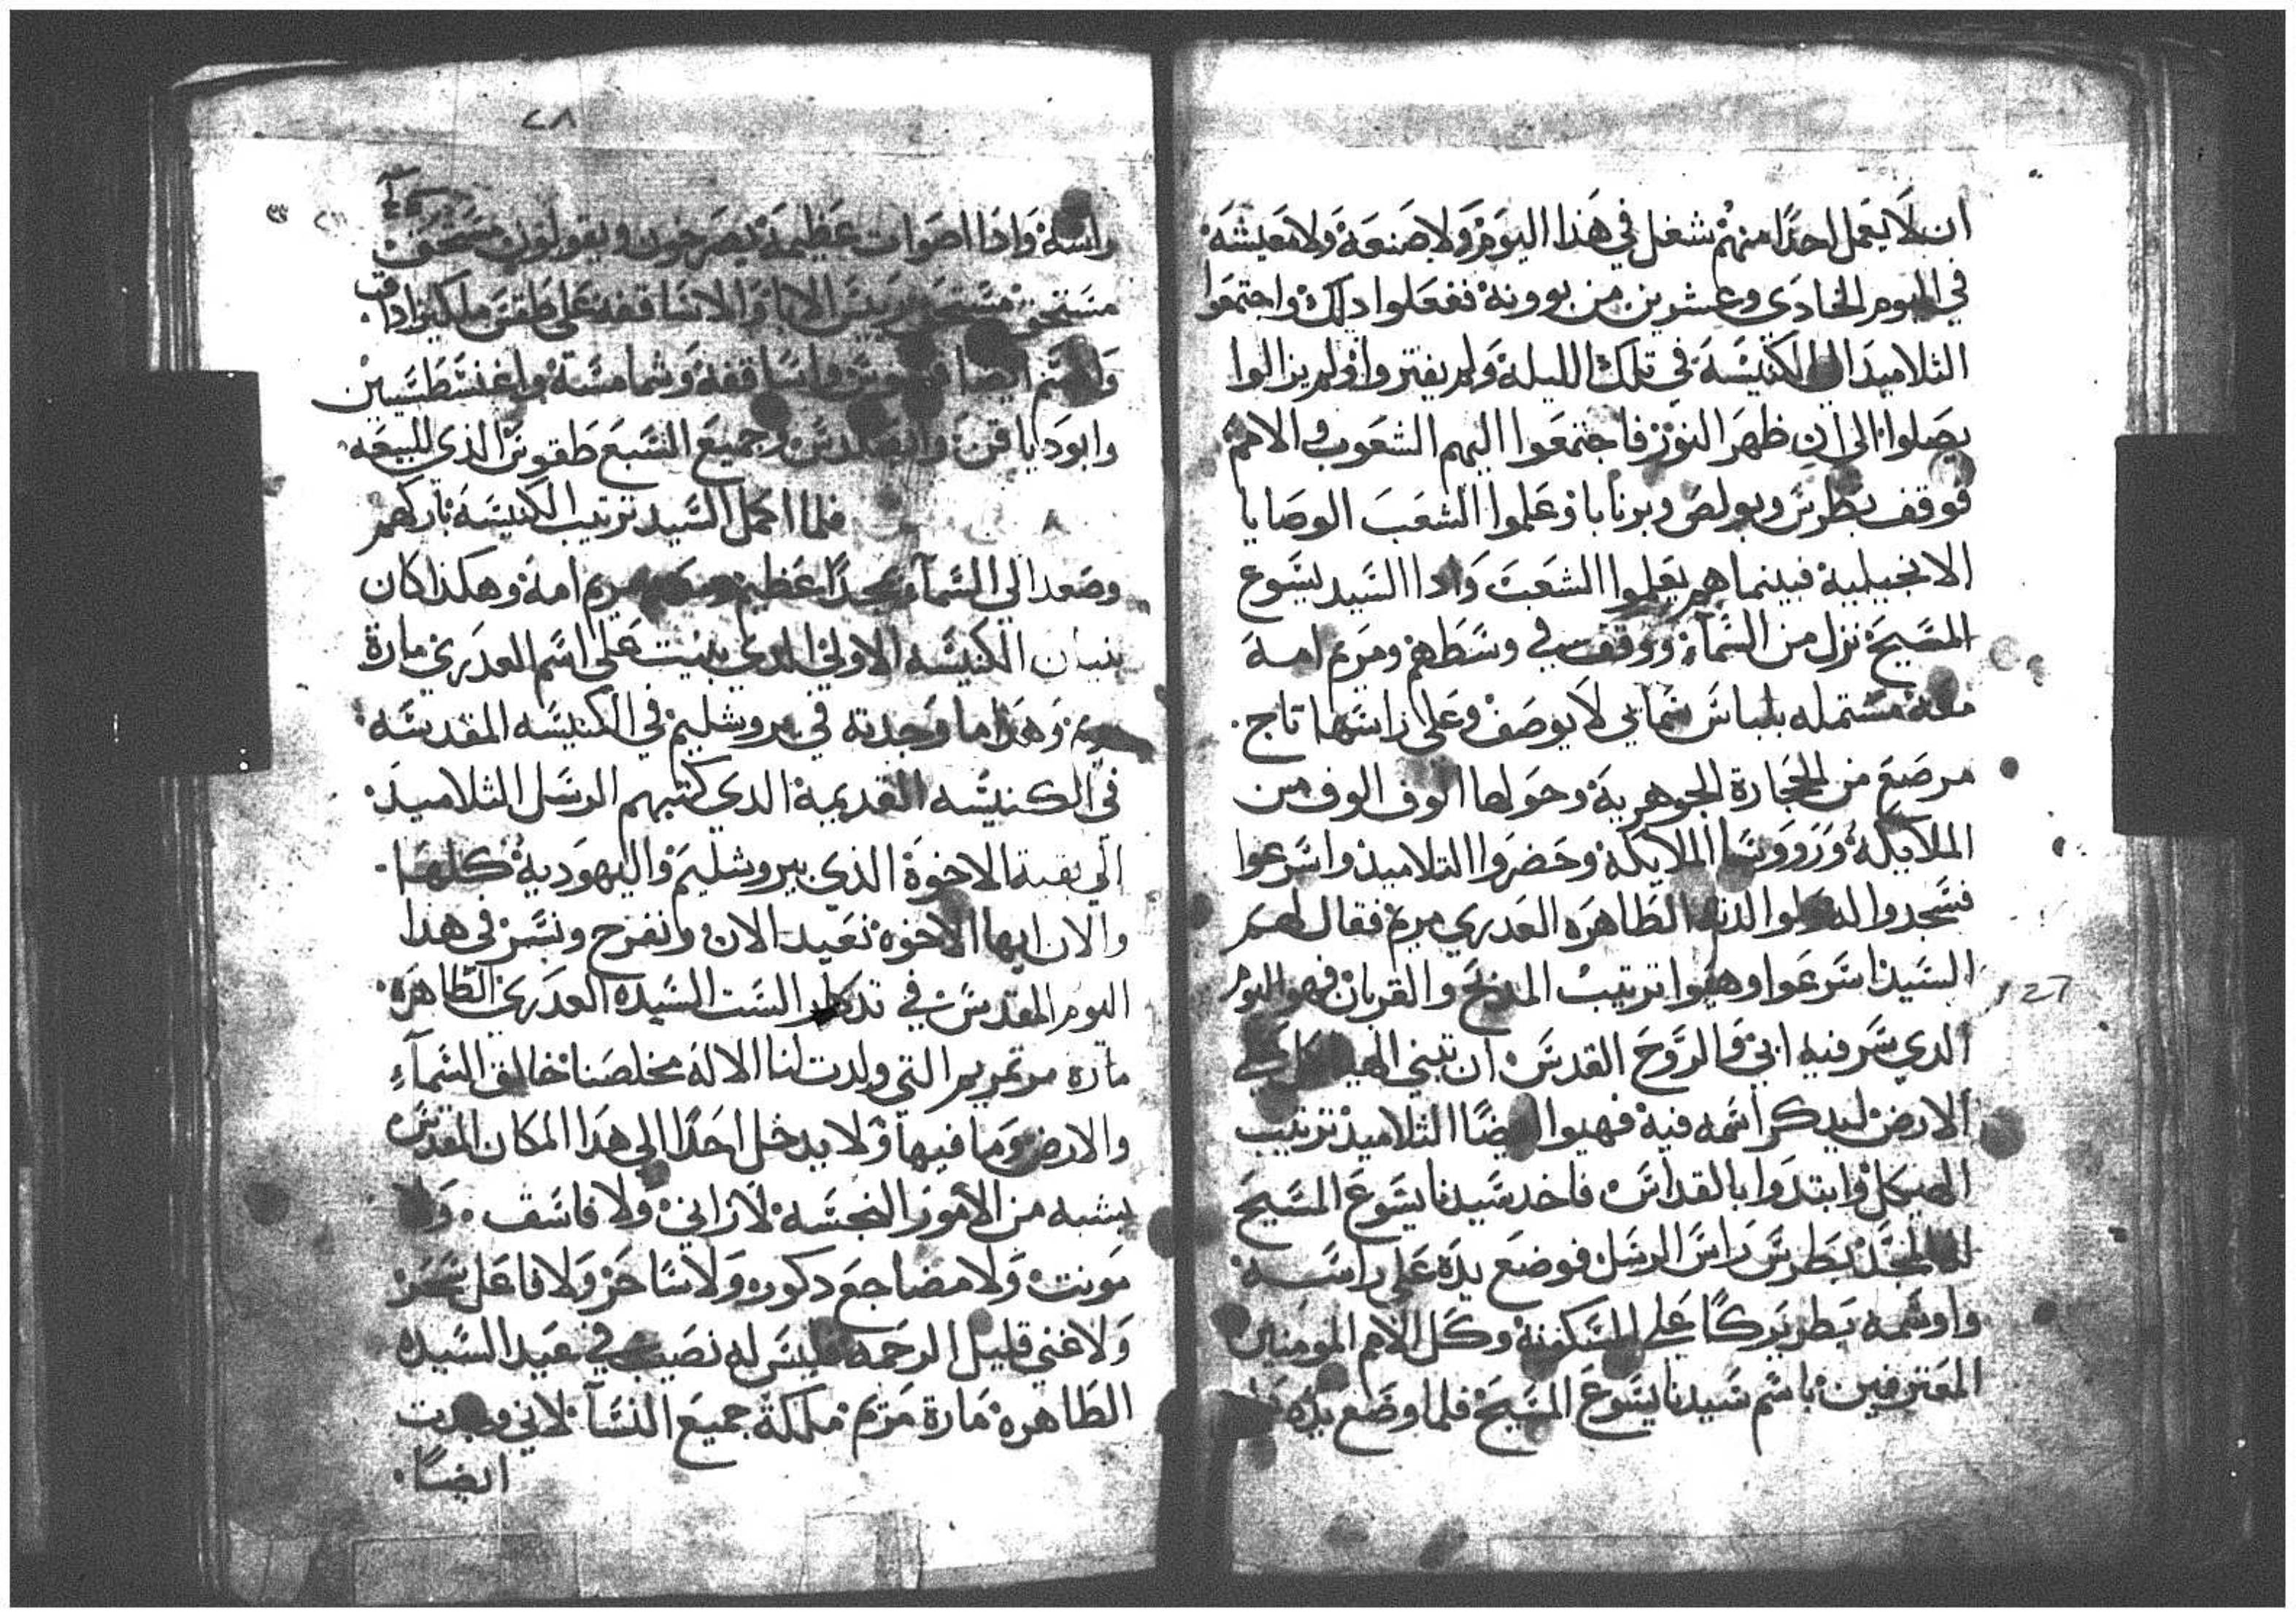 ان لا يعمل احدًا منهم شغل في هذا اليوم ولا صنعة ولا معيشه
في اليوم الحادي وعشرين من بوونة ففعلوا دلك واجتمعوا
التلاميد الي الكنيسة في تلك الليلة ولم يفتروا ولم يزالوا
يصلوا الى ان ظهر النور فاجتمعوا اليهم الشعوب والامم
فوقف بطرس وبولص وبرنابا وعلموا الشعب الوصايا
الانجيلية فبينما هم يعلموا الشعب وادا السيد يسوع
المسيح نزل من السماء ووقف في وسطهم ومريم امه
معه مشتمله بلباس سمائي لا يوصف وعلى راسها تاج
مرصع من الحجارة الجوهرية وحولها الوف الوف من
الملايكة وروسا الملايكة وحضروا التلاميد واسرعوا
فسجدوا الطاهره العدري مريم فقال لهم
السيد اسرعوا وهيوا ترتيب المدبح والقربان فهو اليوم
الدي سر فيه ابي والروح القدس ان تبني الهيكل علي
الارض ليدكر اسمه فيه فهيوا ايضًا التلاميد ترتيب
الهيكل وابتدوا بالقداس فاخد سيدنا يسوع المسيح
بطرس راس الرسل فوضع يده على راسه
واوسمه بطريركًا على المسكونة وكل الامم المومنين
المعترفين باسم سيدنا يسوع المسيح فلما وضع يده
٢٨
راسه وادا اصوات عظيمة يصرخون ويقولون مستحق
مستحق مستحق الابا والاساقفه على طقس ملكيزاداق
وقسم ايضا واساقفه وشمامسة واغنسطسيين
وابودياقن وجميع السبع طقوس الذي للبيعه
فلما اكمل السيد ترتيب الكنيسة باركهم
وصعد الي السماء بمجدًا عظيم مريم امه وهكذا كان
بنيان الكنيسه الاولي الدي بنيت على اسم العدري مارة
مريم وهذا ما وجدته في يروشليم في الكنيسه المقدسه
في الكنيسه القديمة الدي كتبهم الرسل التلاميد
الي بقية الاخوة الذي بيروشليم واليهودية كلها
والان ايها الاخوه نعيد الان ونفرح ونسر في هدا
اليوم المقدس في تدكار الست السيده العدري الطاهرة
مارة مرتمريم التي ولدت لنا الاله مخلصنا خالق السماء
والارض وما فيها ولا يدخل احدًا الى هدا المكان المقدس
بشبه من الامور النجسه لا زاني ولا فاسق ولا
مونت ولا مضاجع دكور ولا ساحر ولا فاعل سحر
ولا غني قليل الرحمه فليس له نصيب في عيد السيده
الطاهرة مارة مريم ملكة جميع النسآ لاني وجدت
ايضًا